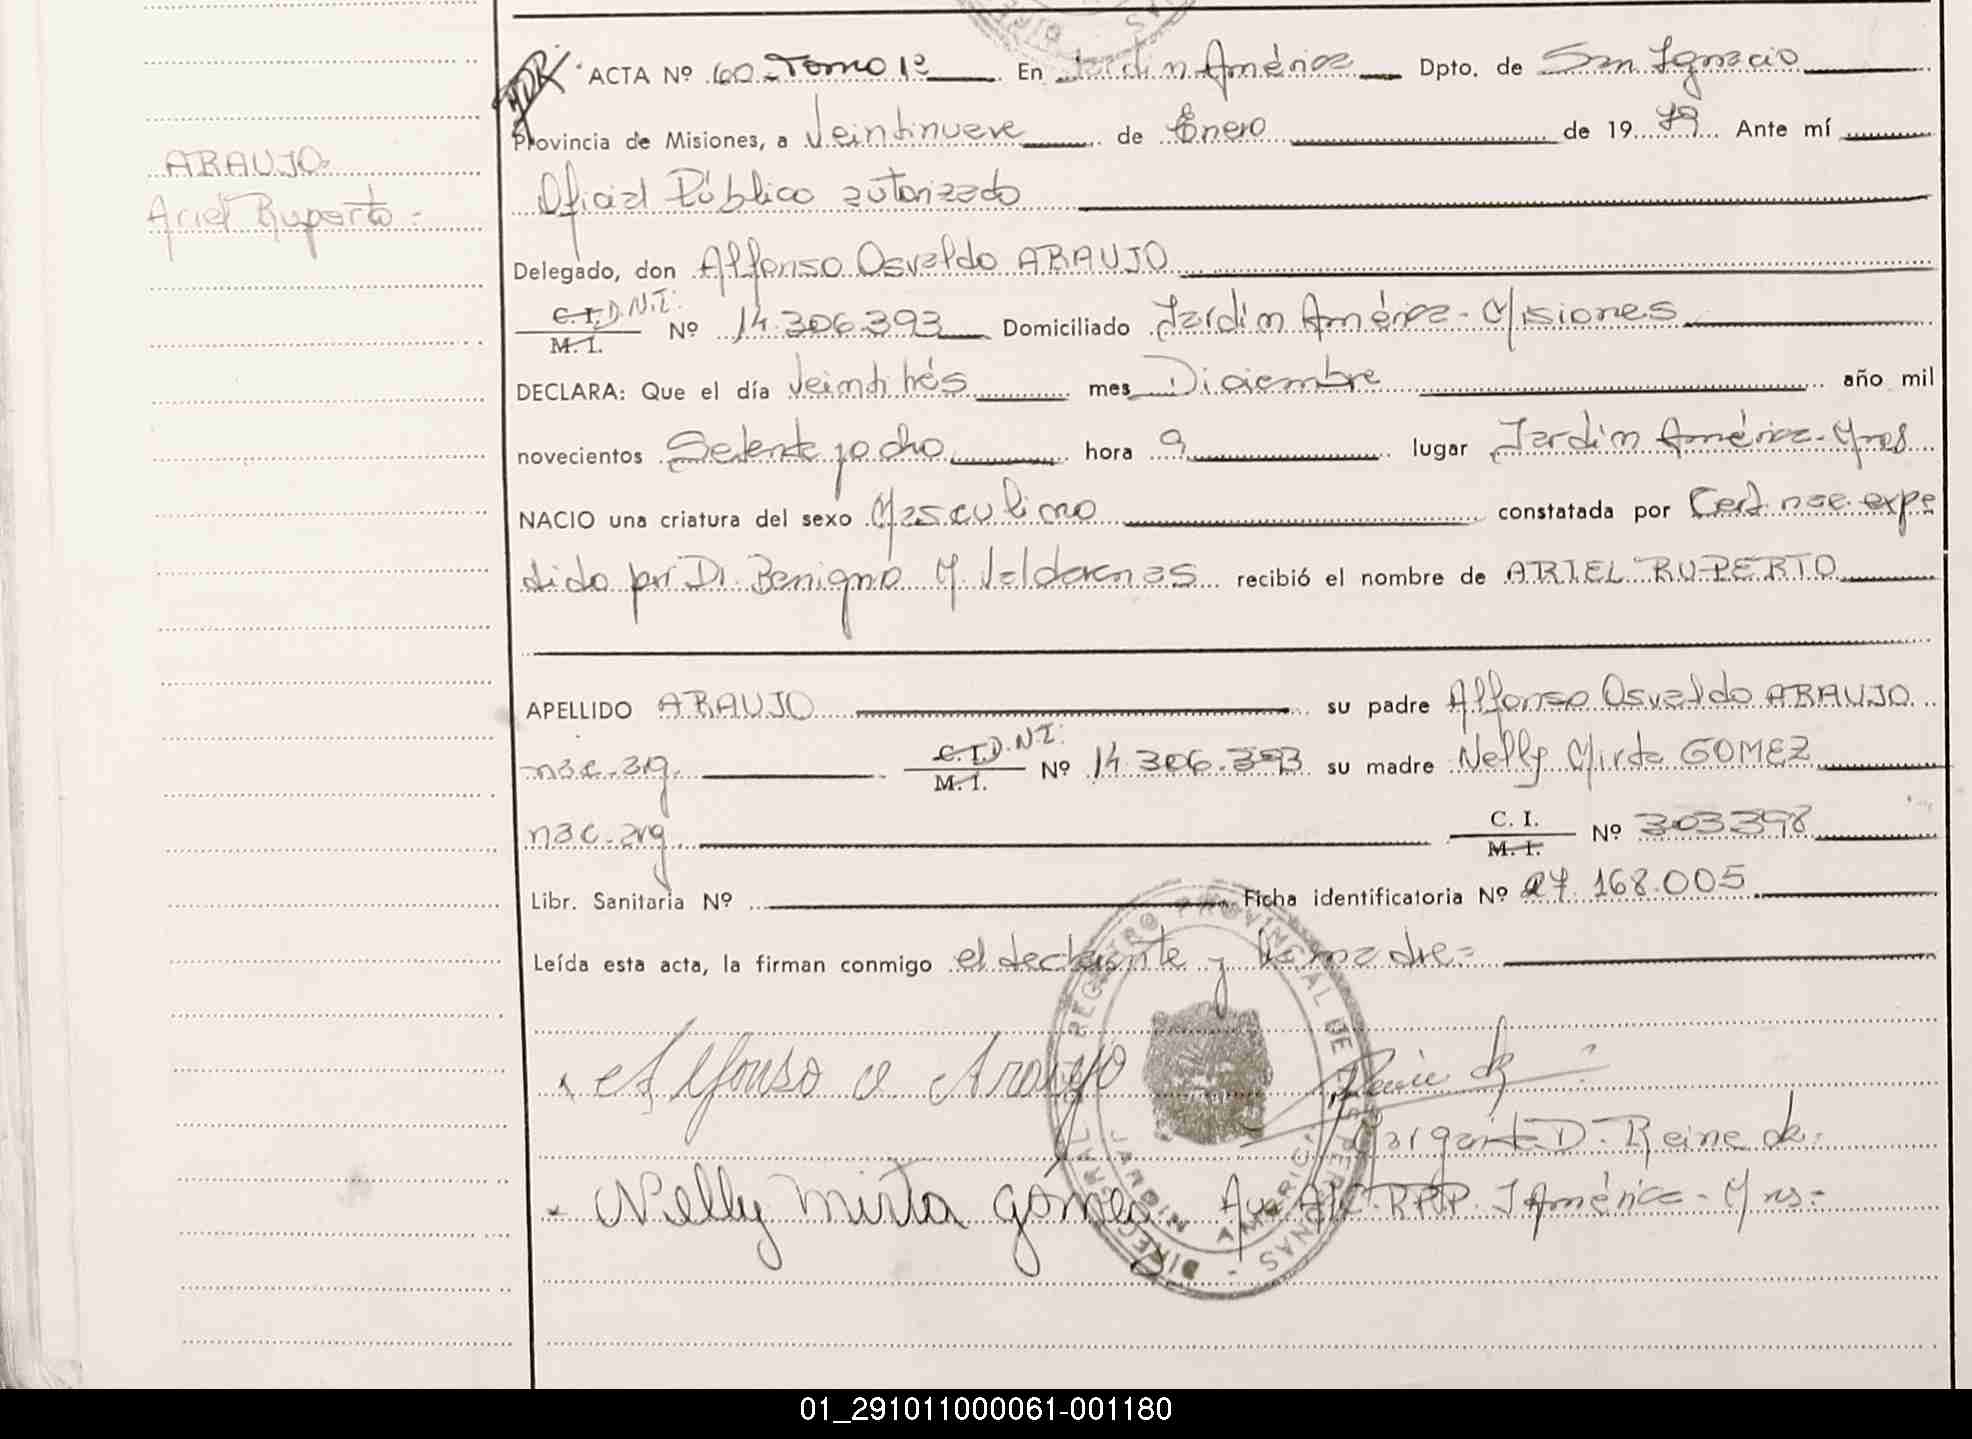 ARAUJO=
Ariel Ruperto=
ACTA Nº 60 Tomo 1º En Jardín América Dpto. de San Ignacio
Provincia de Misiones, a Veintinueve de Enero de 1979 Ante mí
Oficial Público autorizado
Delegado, don Alfonso Osvaldo ARAUJO
C. I. D.N.I.
M. I. Nº 14.306.393 Domiciliado Jardín América-Misiones
DECLARA: Que el día Veintitrés mes Diciembre año mil
novecientos Setenta y ocho hora 9 lugar Jardín América-Mnes
NACIO una criatura del sexo Masculino constatada por Cert. nac. expe
dido por Dr. Benigno M Valdarenas recibió el nombre de ARIEL RUPERTO
APELLIDO ARAUJO su padre Alfonso Osvaldo ARAUJO
nac. arg. C. I. D.N.I. M. I. Nº 14.306.393 su madre Nelly Mirta GOMEZ
nac. arg. C. I. M. I. Nº 303398
Libr. Sanitaria Nº Ficha identificatoria Nº 27.168.005
Leída esta acta, la firman conmigo el declarante y la madre=
Alfonso O Araujo
Margarita D. Reine de
Nelly Mirta Gómez
J América-Mns=
REGISTRO PROVINCIAL DE
JARDIN AMERICA
01_291011000061-001180